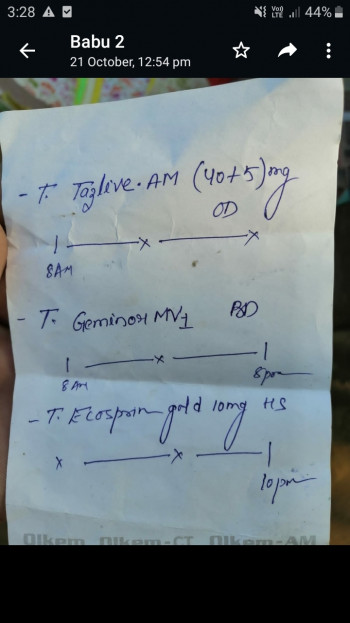 3:28 44%
Babu 2
21 October, 12:54 pm
- T. Tazlive. AM (40+5)mg
OD
| — x — x
8AM
- T. Geminor MV1 BD
| — x — |
8AM 8pm
- T. Ecosprin gold 10mg HS
x — x — |
10pm
Olkem Olkem-CT Olkem-AM